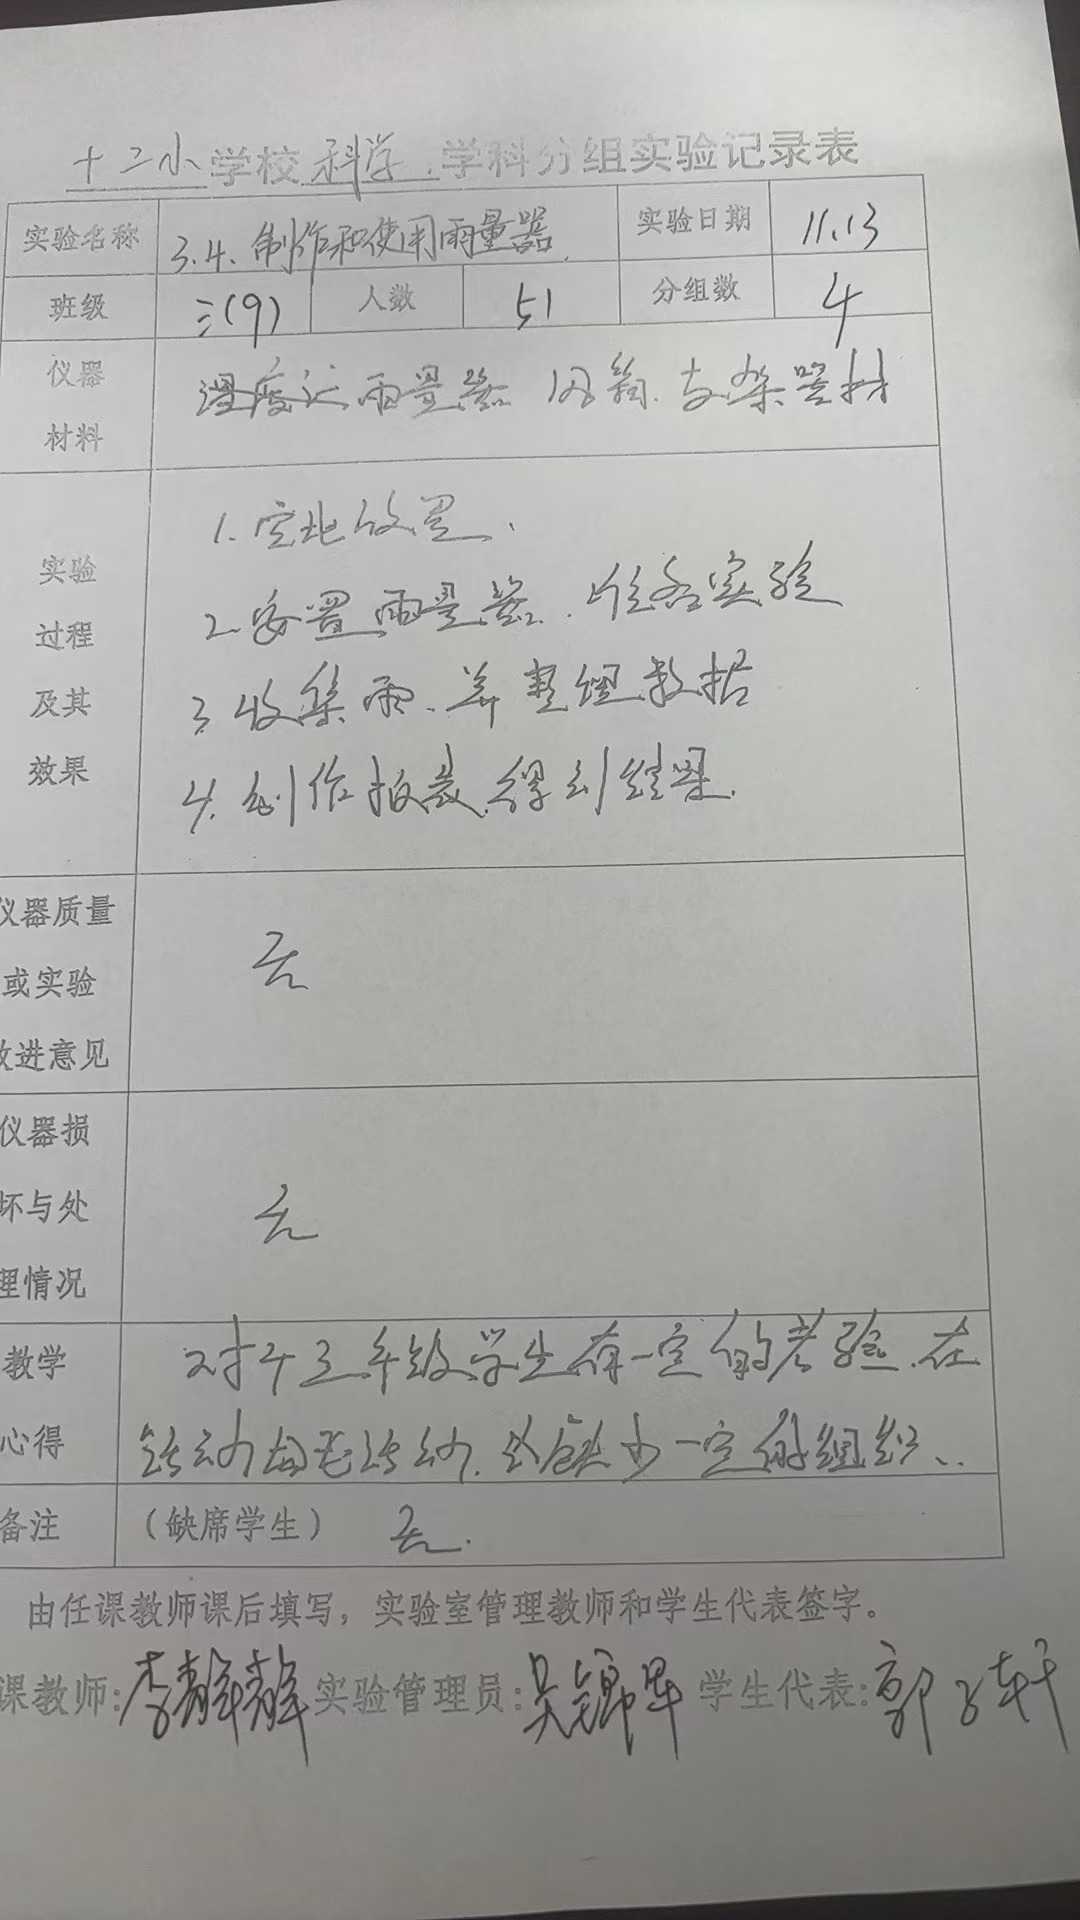 十二小学校科学学科分组实验记录表
实验名称 3.4.制作和使用雨量器 实验日期 11.13
班级 三(9) 人数 51 分组数 4
仪器
材料
温度计 雨量器 支架器材
实验
过程
及其
效果
1.空地放置.
2.安置雨量器.准备实验
3.收集雨.并整理数据
4.制作报表.得到结果.
仪器质量
或实验
改进意见
无
仪器损
坏与处
理情况
无
教学
心得
对于三年级学生有一定的考验.在
活动 活动.缺少一定的组织..
备注 (缺席学生) 无.
由任课教师课后填写，实验室管理教师和学生代表签字。
课教师: 李 实验管理员: 吴 学生代表: 郭子轩